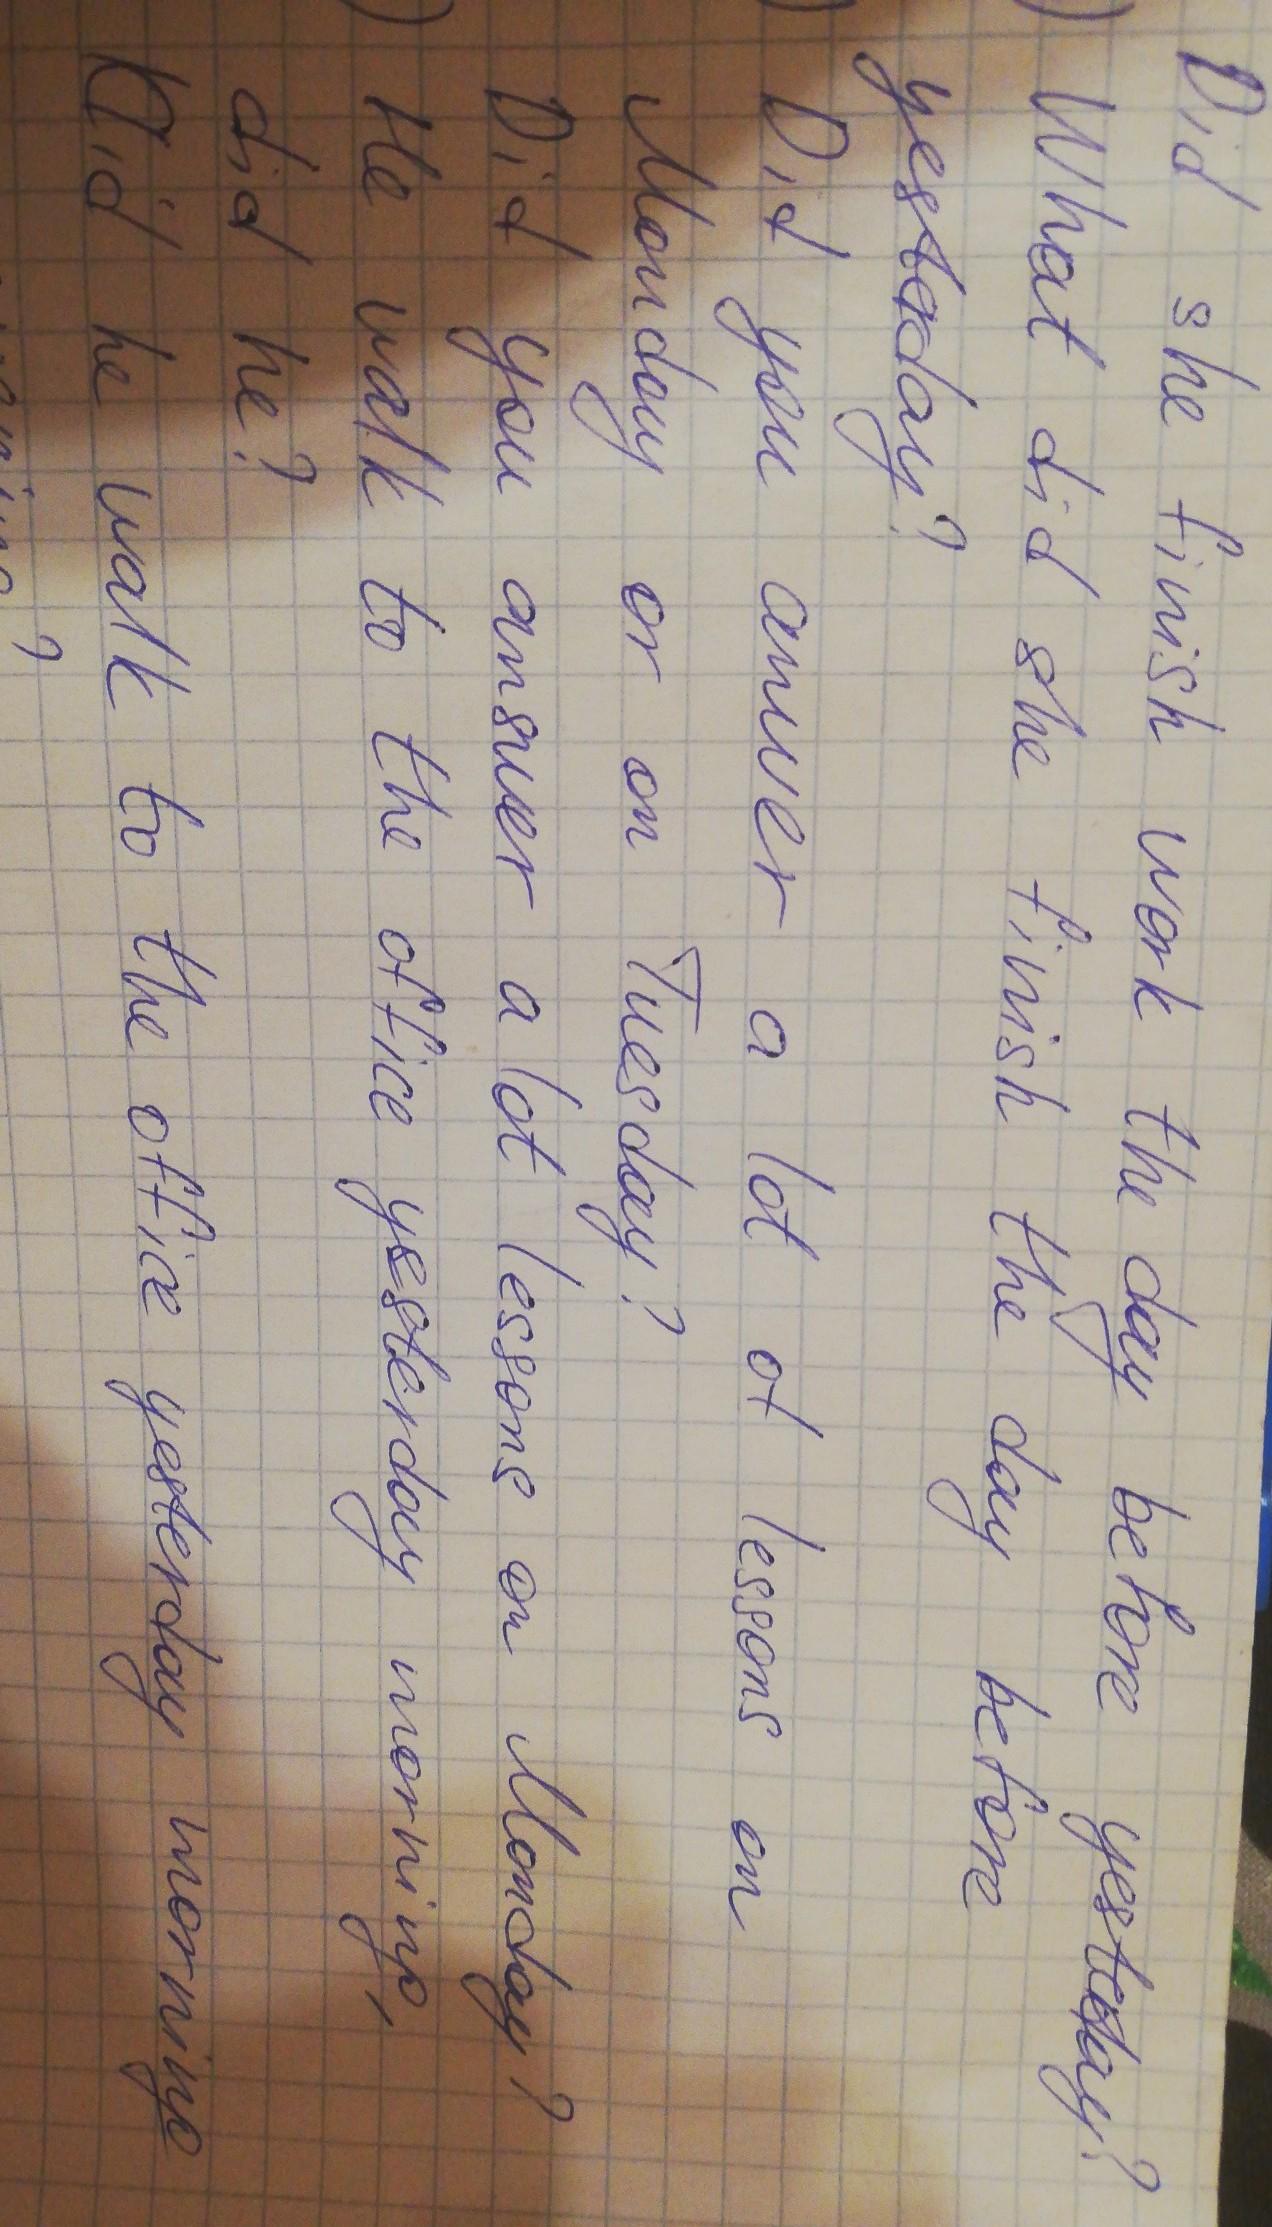 Did she finish work the day before yestoday?
) What did she finish the day before
yestoday?
) Did you anwer a lot of lessons on
Monday or on Tuesday?
Did you answer a lot lessons on Monday?
) He walk to the office yesterday morning,
did he?
Did he walk to the office yesterday morning
?